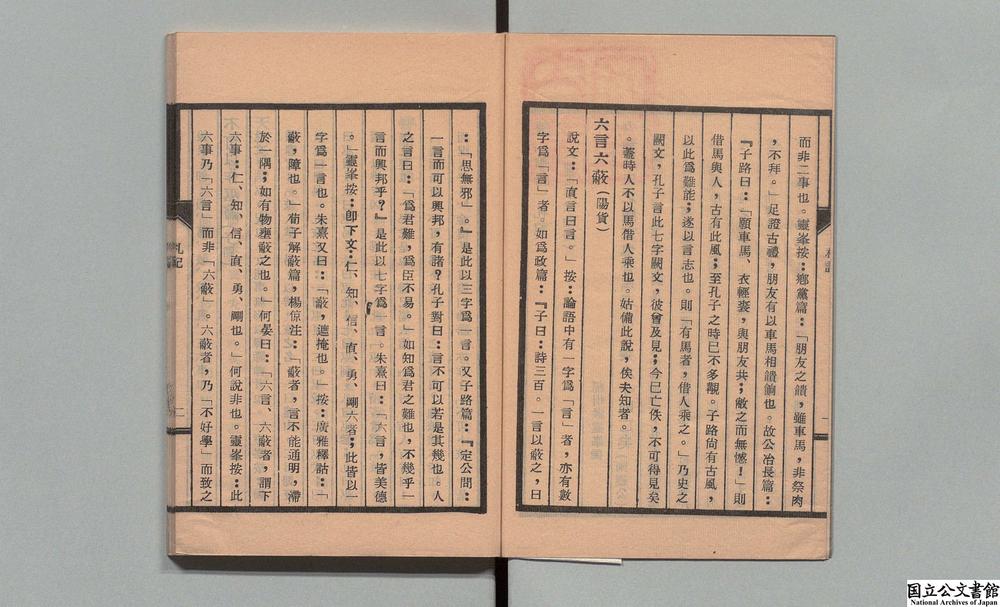 而非二事也。靈峯按：鄉黨篇：「朋友之饋，雖車馬，非祭肉
，不拜。」足證古禮，朋友有以車馬相饋餉也。故公冶長篇：
『子路曰：「願車馬、衣輕裘，與朋友共；敝之而無憾！」則
借馬與人，古有此風；至孔子之時已不多觀。子路尚有古風，
以此爲難能；遂以言志也。則「有馬者，借人乘之。」乃史之
闕文，孔子言此七字闕文，彼曾及見；今已亡佚，不可得見矣
。蓋時人不以馬借人乘也。姑備此說，俟夫知者。
六言六蔽（陽貨）
說文：「直言曰言。」按：論語中有一字爲「言」者，亦有數
字爲「言」者。如爲政篇：『子曰：詩三百。一言以蔽之，曰
：「思無邪」。』是此以三字爲一言。又子路篇：『定公問：
一言而可以興邦，有諸？孔子對曰：言不可以若是其幾也。人
之言曰：「爲君難，爲臣不易。」如知爲君之難也，不幾乎一
言而興邦乎？』是此以七字爲一言。朱熹曰：「六言，皆美德
。」靈峯按：卽下文：仁、知、信、直、勇、剛六者；此皆以一
字爲一言也。朱熹又曰：「蔽，遮掩也。」按：廣雅釋詁：「
蔽，障也。」荀子解蔽篇，楊倞注：「蔽者，言不能通明，滯
於一隅；如有物壅蔽之也。」何晏曰：「六言、六蔽者，謂下
六事：仁、知、信、直、勇、剛也。」何說非也。靈峯按：此
六事乃「六言」而非「六蔽」。六蔽者，乃「不好學」而致之
札記
二
国立公文書館
National Archives of Japan